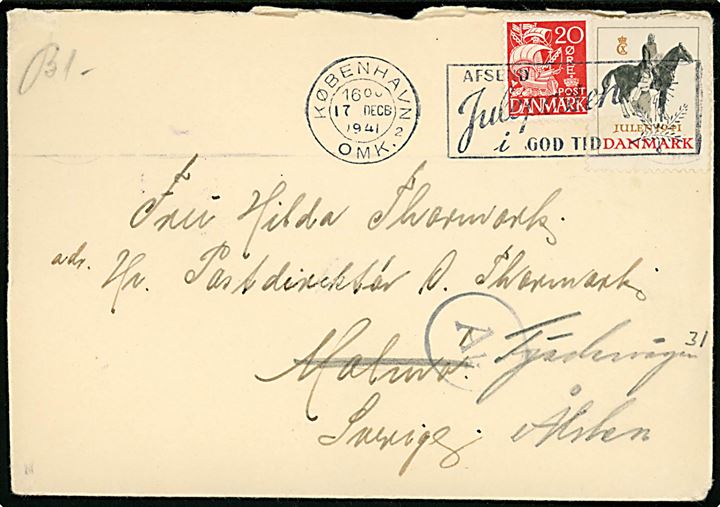 B1-
KØBENHAVN
1600
17 DECB
1941
2
OMK.
AFSEND
Juleposten
i GOD TID
20
ØRE
POST
DANMARK
JULEN 1941
DANMARK
Fru Hilda Thormark.
adr. Hr. Postdirektør O. Thormark.
Malmö. 31
Sverige. Ålsten